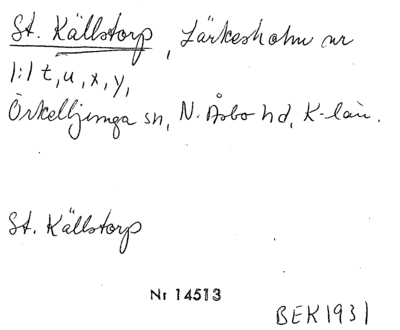 St. Källstorp, Lärkesholm nr
1:1 t, u, x, y,
Örkelljunga sn, N. Åsbo hd, K-län.
St. Källstorp
Nr 14513
BEK 1931